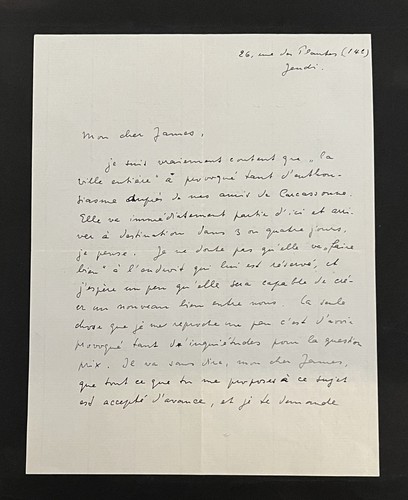 26, rue des Plantes (14e)
Jeudi.
Mon cher James,
je suis vraiement content que "la
ville entière" à provoqué tant d'enthou-
siasme auprès de nos amis de Carcassonne.
Elle va immédiatement partir d'ici et arri-
ver à destination dans 3 ou quatre jours,
je pense. Je ne doute pas qu'elle va "faire
bien" à l'endroit qui lui est réservé, et
j'espère un peu qu'elle sera capable de cré-
er un nouveau lien entre nous. La seule
chose que je me reproche un peu c'est d'avoir
provoqué tant d'inquiétudes pour la question
prix. Il va sans dire, mon cher James,
que tout ce que tu me proposes à ce sujet
est accepté d'avance, et je te demande